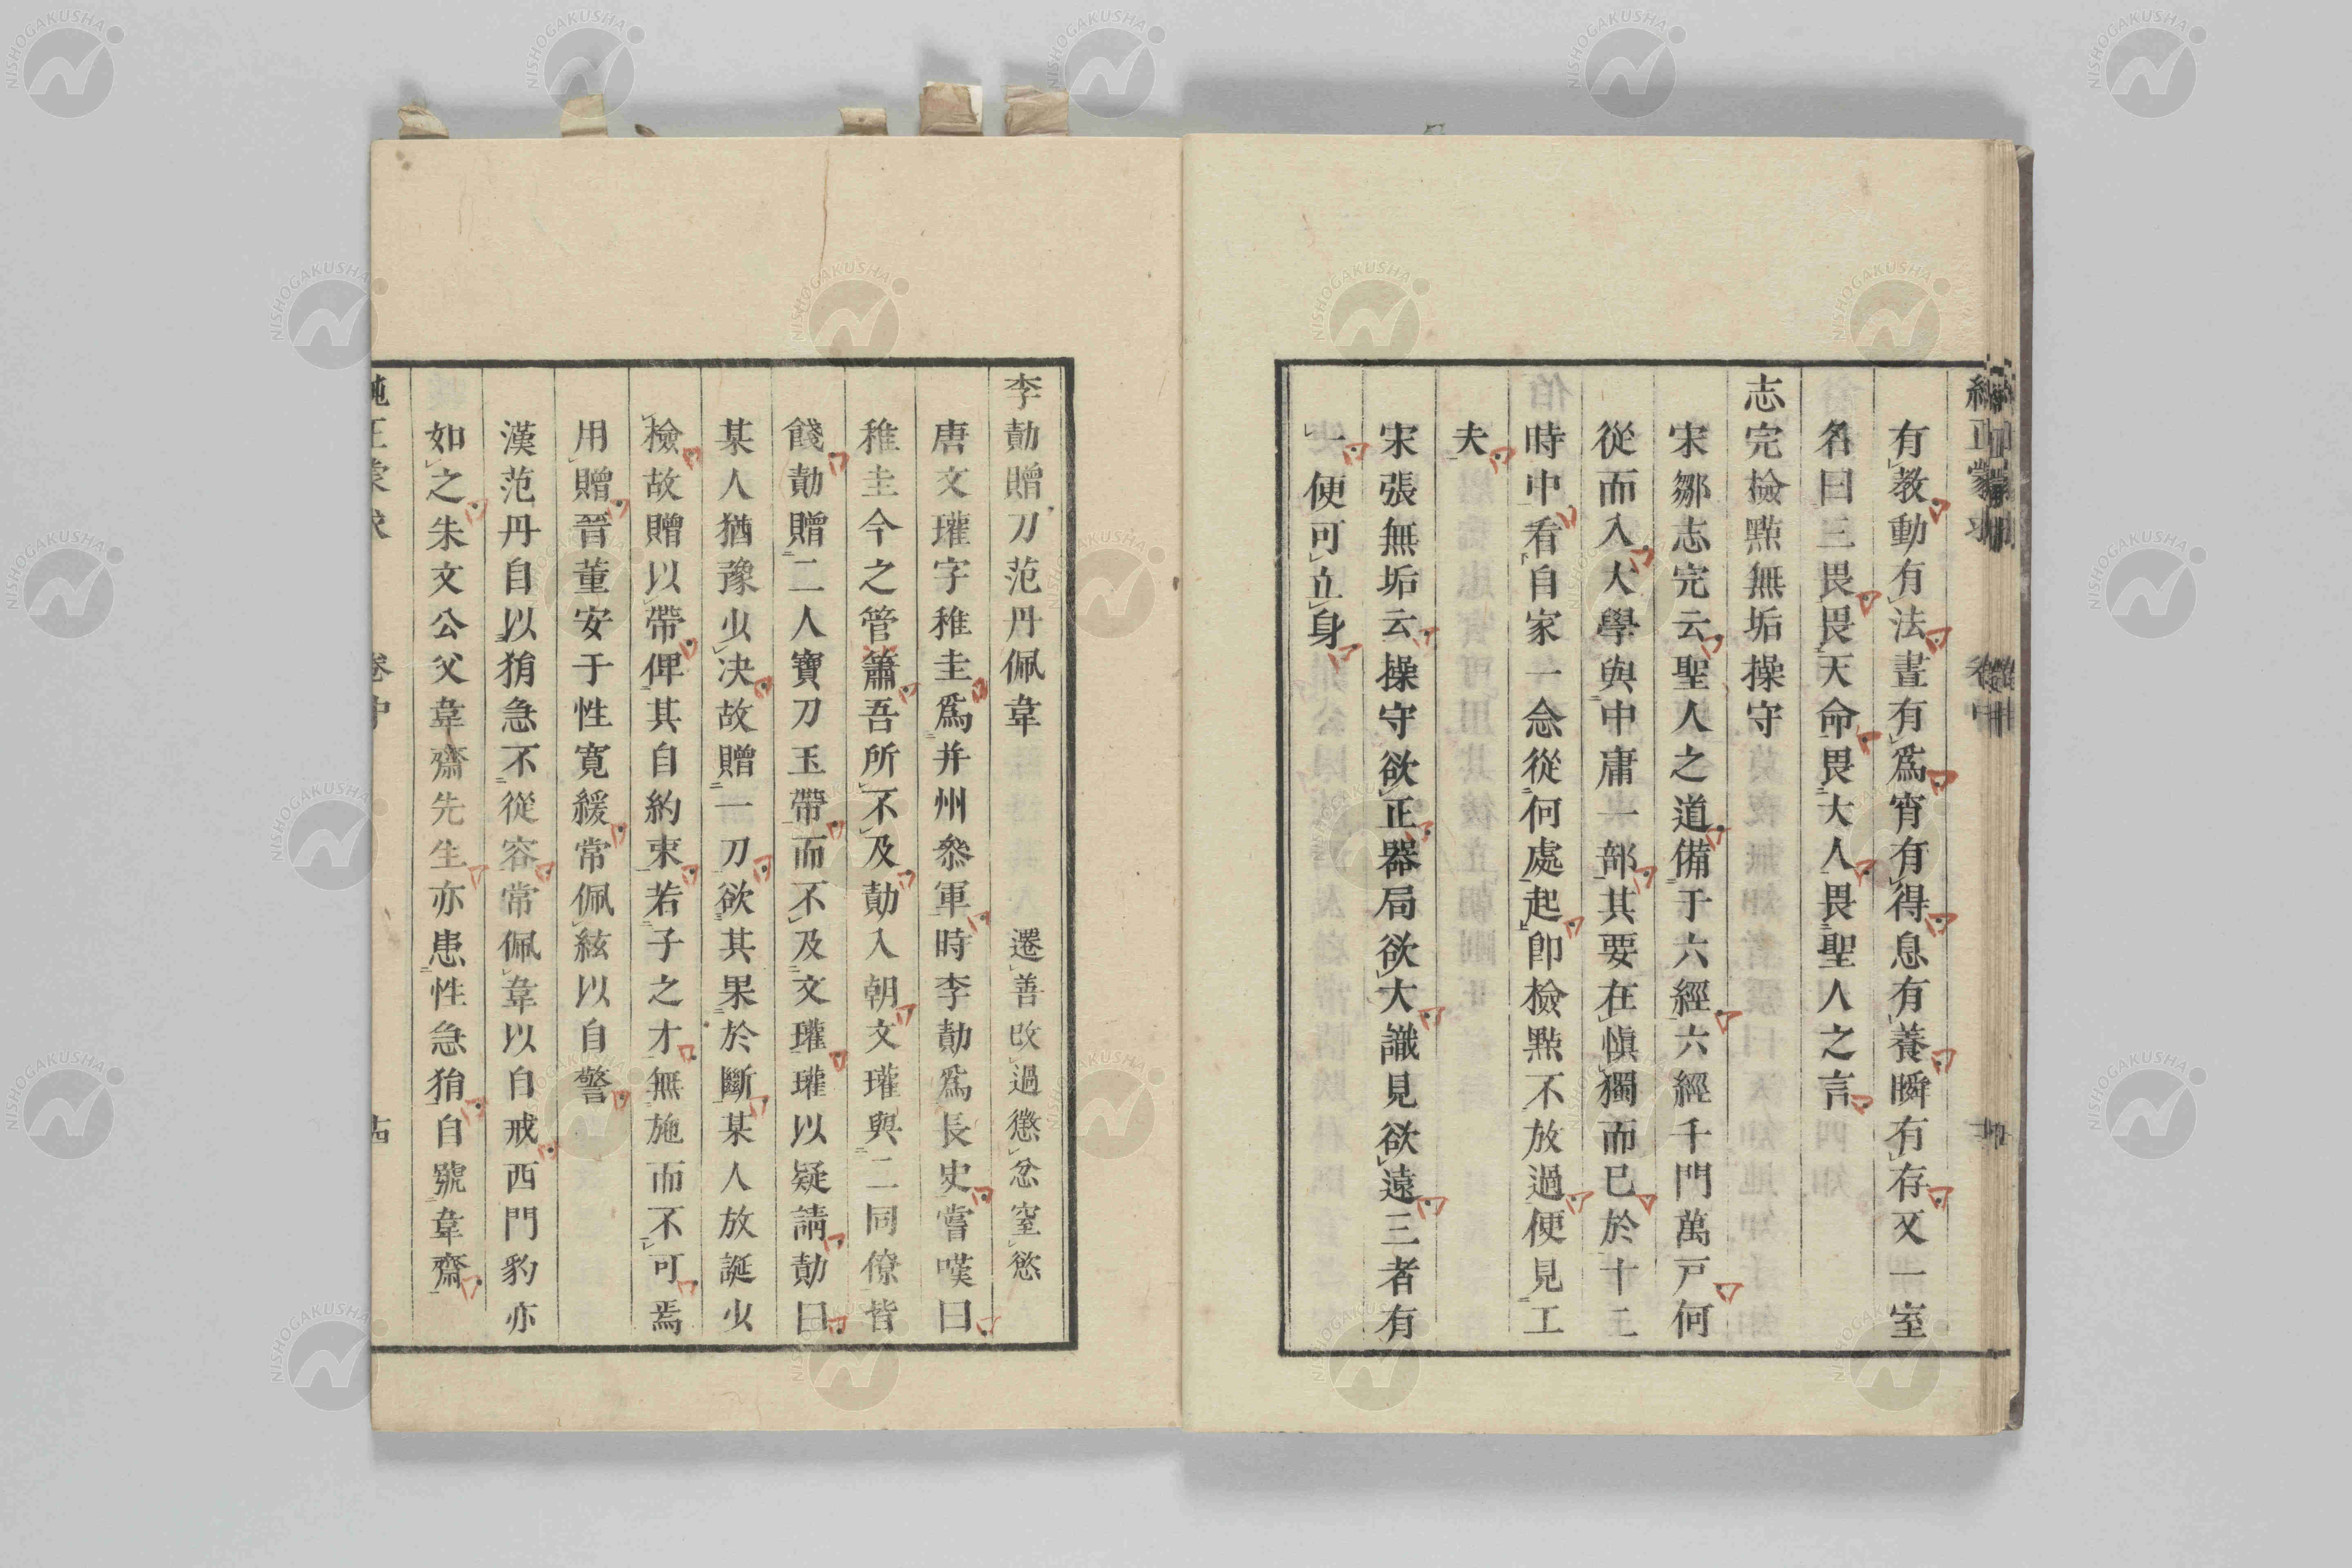 有教動有法晝有爲宵有得息有養瞬有存又一室
名曰三畏畏天命畏大人畏聖人之言
志完檢點無垢操守
宋鄒志完云聖人之道備于六經六經千門萬戸何
從而入大學與中庸一部其要在愼獨而已於十二
時中看自家一念從何處起卽檢點不放過便見工
夫
宋張無垢云操守欲正器局欲大識見欲遠三者有
一便可立身
李勣贈刀范丹佩韋 遷善改過懲忿窒慾
唐文瓘字稚圭爲并州叅軍時李勣爲長史嘗嘆曰
稚圭今之管簫吾所不及勣入朝文瓘與二同僚皆
餞勣贈二人寶刀玉帶而不及文瓘瓘以疑請勣曰
某人猶豫少决故贈一刀欲其果於斷某人放誕少
檢故贈以帶俾其自約束若子之才無施而不可焉
用贈晉董安于性寬緩常佩絃以自警
漢范丹自以狷急不從容常佩韋以自戒西門豹亦
如之朱文公父韋齋先生亦患性急狷自號韋齋
純正蒙求 卷中 十四
NISHOGAKUSHA